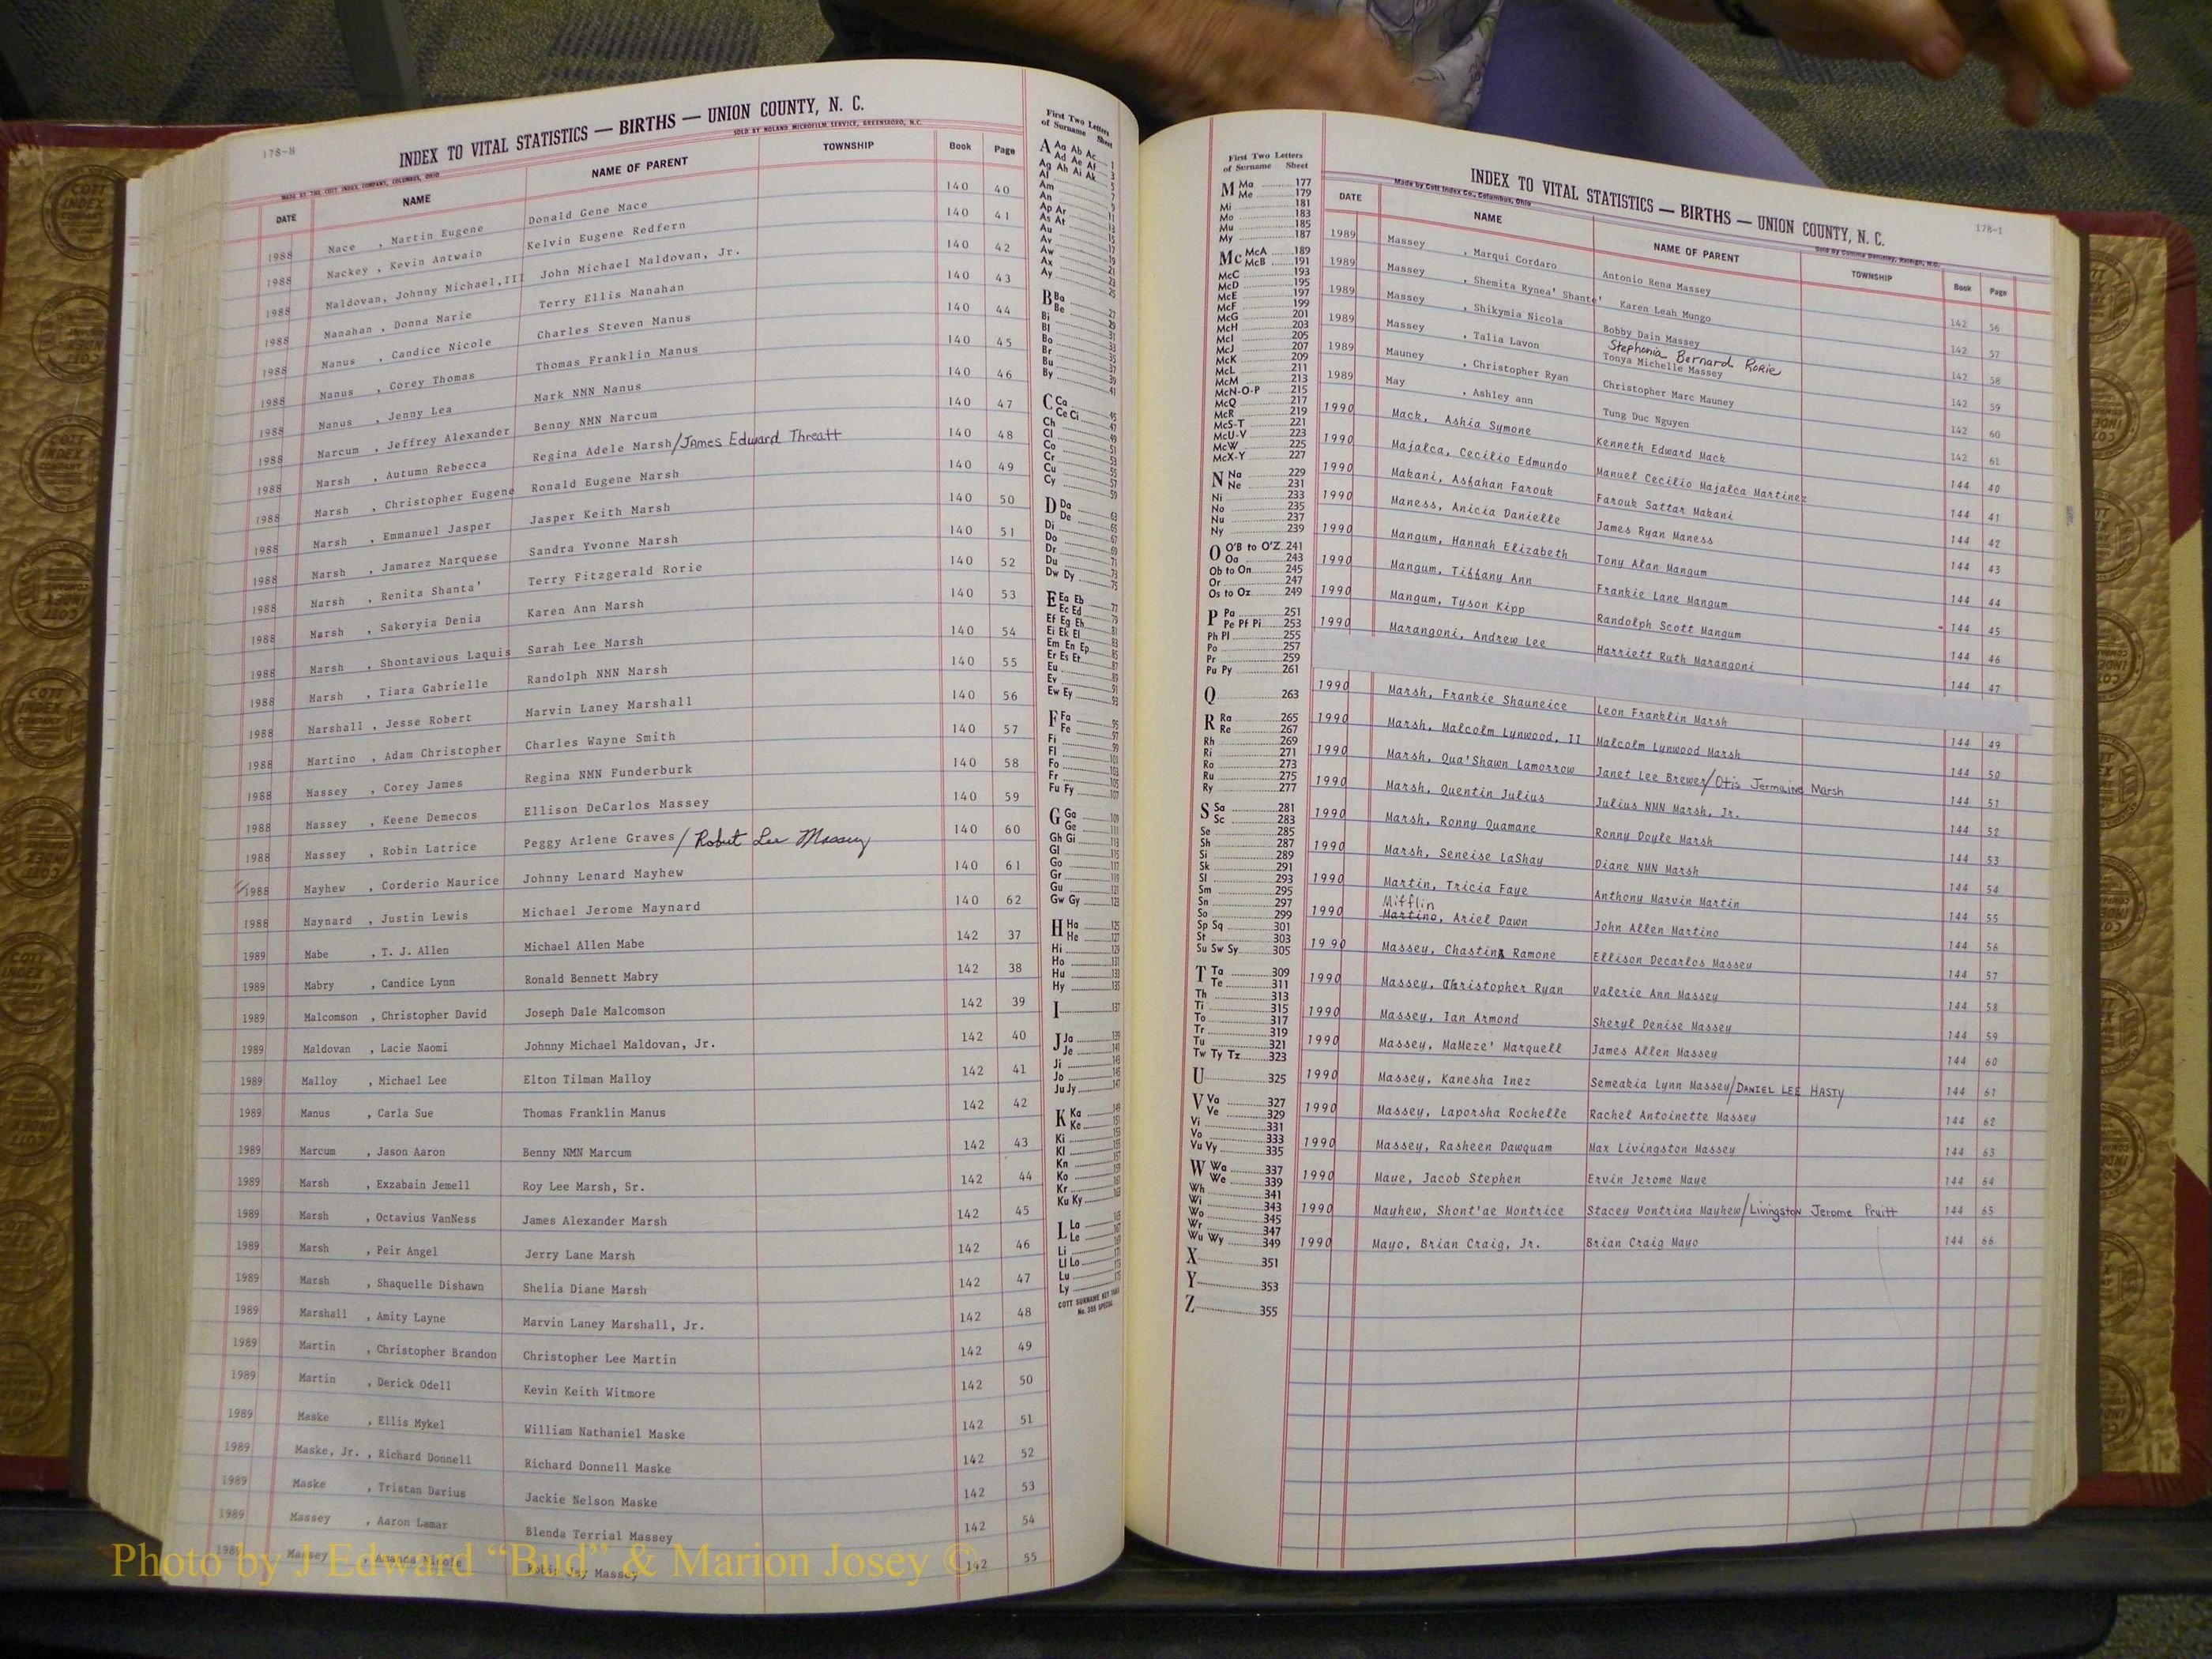 178-H
INDEX TO VITAL STATISTICS — BIRTHS — UNION COUNTY, N. C.
MADE BY THE COTT INDEX COMPANY, COLUMBUS, OHIO SOLD BY NOLAND MICROFILM SERVICE, GREENSBORO, N.C.
DATE NAME NAME OF PARENT TOWNSHIP Book Page
1988 Mace , Martin Eugene Donald Gene Mace 140 40
1988 Mackey , Kevin Antwain Kelvin Eugene Redfern 140 41
1988 Maldovan, Johnny Michael,III John Michael Maldovan, Jr. 140 42
1988 Manahan , Donna Marie Terry Ellis Manahan 140 43
1988 Manus , Candice Nicole Charles Steven Manus 140 44
1988 Manus , Corey Thomas Thomas Franklin Manus 140 45
1988 Manus , Jenny Lea Mark NMN Manus 140 46
1988 Marcum , Jeffrey Alexander Benny NMN Marcum 140 47
1988 Marsh , Autumn Rebecca Regina Adele Marsh/James Edward Threatt 140 48
1988 Marsh , Christopher Eugene Ronald Eugene Marsh 140 49
1988 Marsh , Emmanuel Jasper Jasper Keith Marsh 140 50
1988 Marsh , Jamarez Marquese Sandra Yvonne Marsh 140 51
1988 Marsh , Renita Shanta' Terry Fitzgerald Rorie 140 52
1988 Marsh , Sakoryia Denia Karen Ann Marsh 140 53
1988 Marsh , Shontavious Laquis Sarah Lee Marsh 140 54
1988 Marsh , Tiara Gabrielle Randolph NMN Marsh 140 55
1988 Marshall , Jesse Robert Marvin Laney Marshall 140 56
1988 Martino , Adam Christopher Charles Wayne Smith 140 57
1988 Massey , Corey James Regina NMN Funderburk 140 58
1988 Massey , Keene Demecos Ellison DeCarlos Massey 140 59
1988 Massey , Robin Latrice Peggy Arlene Graves / Robert Lee Massey 140 60
1988 Mayhew , Corderio Maurice Johnny Lenard Mayhew 140 61
1988 Maynard , Justin Lewis Michael Jerome Maynard 140 62
1989 Mabe , T. J. Allen Michael Allen Mabe 142 37
1989 Mabry , Candice Lynn Ronald Bennett Mabry 142 38
1989 Malcomson , Christopher David Joseph Dale Malcomson 142 39
1989 Maldovan , Lacie Naomi Johnny Michael Maldovan, Jr. 142 40
1989 Malloy , Michael Lee Elton Tilman Malloy 142 41
1989 Manus , Carla Sue Thomas Franklin Manus 142 42
1989 Marcum , Jason Aaron Benny NMN Marcum 142 43
1989 Marsh , Exzabain Jemell Roy Lee Marsh, Sr. 142 44
1989 Marsh , Octavius VanNess James Alexander Marsh 142 45
1989 Marsh , Peir Angel Jerry Lane Marsh 142 46
1989 Marsh , Shaquelle Dishawn Shelia Diane Marsh 142 47
1989 Marshall , Amity Layne Marvin Laney Marshall, Jr. 142 48
1989 Martin , Christopher Brandon Christopher Lee Martin 142 49
1989 Martin , Derick Odell Kevin Keith Witmore 142 50
1989 Maske , Ellis Mykel William Nathaniel Maske 142 51
1989 Maske, Jr. , Richard Donnell Richard Donnell Maske 142 52
1989 Maske , Tristan Darius Jackie Nelson Maske 142 53
1989 Massey , Aaron Lamar Blenda Terrial Massey 142 54
Massey , Amanda Nicole Massey 142 55
Photo by J Edward "Bud" & Marion Josey ©
First Two Letters
of Surname Sheet
A Aa Ab Ac 1
Ad Ae Af 3
Ag Ah Ai Ak 5
Al
Am
An
Ap Ar
As At
Au
Av
Aw
Ax
Ay
B Ba
Be
Bi
Bl
Bo
Br
Bu
By
C Ca
Ce Ci
Ch
Cl
Co
Cr
Cu
Cy
D Da
De
Di
Do
Dr
Du
Dw Dy
E Ea Eb
Ec Ed
Ef Eg Eh
Ei Ek El
Em En Ep
Er Es Et
Eu
Ev
Ew Ey
F Fa
Fe
Fi
Fl
Fo
Fr
Fu Fy
G Ga
Ge
Gh Gi
Gl
Go
Gr
Gu
Gw Gy
H Ha
He
Hi
Ho
Hu
Hy
I
J Ja
Je
Ji
Jo
Ju Jy
K Ka
Ke
Ki
Kl
Kn
Ko
Kr
Ku Ky
L La
Le
Li
Ll Lo
Lu
Ly
COTT SURNAME KEY TABLE
First Two Letters
of Surname Sheet
M Ma 177
Me 179
Mi 181
Mo 183
Mu 185
My 187
Mc McA 189
McB 191
McC 193
McD 195
McE 197
McF 199
McG 201
McH 203
McI 205
McJ 207
McK 209
McL 211
McM 213
McN-O-P 215
McQ 217
McR 219
McS-T 221
McU-V 223
McW 225
McX-Y 227
N Na 229
Ne 231
Ni 233
No 235
Nu 237
Ny 239
O O'B to O'Z 241
Oa 243
Ob to On 245
Or 247
Os to Oz 249
P Pa 251
Pe Pf Pi 253
Ph Pl 255
Po 257
Pr 259
Pu Py 261
Q 263
R Ra 265
Re 267
Rh 269
Ri 271
Ro 273
Ru 275
Ry 277
S Sa 281
Sc 283
Se 285
Sh 287
Si 289
Sk 291
Sl 293
Sm 295
Sn 297
So 299
Sp Sq 301
St 303
Su Sw Sy 305
T Ta 309
Te 311
Th 313
Ti 315
To 317
Tr 319
Tu 321
Tw Ty Tz 323
U 325
V Va 327
Ve 329
Vi 331
Vo 333
Vu Vy 335
W Wa 337
We 339
Wh 341
Wi 343
Wo 345
Wr 347
Wu Wy 349
X 351
Y 353
Z 355
INDEX TO VITAL STATISTICS — BIRTHS — UNION COUNTY, N. C.
178-1
Made by Cott Index Co., Columbus, Ohio
DATE NAME NAME OF PARENT TOWNSHIP Book Page
1989 Massey , Marqui Cordaro Antonio Rena Massey 142 56
1989 Massey , Shemita Rynea' Shante' Karen Leah Mungo 142 57
1989 Massey , Shikymia Nicola Bobby Dain Massey 142 58
Stephonia Bernard Rorie
1989 Massey , Talia Lavon Tonya Michelle Massey 142 59
1989 Mauney , Christopher Ryan Christopher Marc Mauney 142 60
1989 May , Ashley ann Tung Duc Nguyen 142 61
1990 Mack, Ashia Symone Kenneth Edward Mack 144 40
1990 Majalca, Cecilio Edmundo Manuel Cecilio Majalca Martinez 144 41
1990 Makani, Asfahan Farouk Farouk Sattar Makani 144 42
1990 Maness, Anicia Danielle James Ryan Maness 144 43
1990 Mangum, Hannah Elizabeth Tony Alan Mangum 144 44
1990 Mangum, Tiffany Ann Frankie Lane Mangum 144 45
1990 Mangum, Tyson Kipp Randolph Scott Mangum 144 46
1990 Marangoni, Andrew Lee Harriett Ruth Marangoni 144 47
1990 Marsh, Frankie Shauneice Leon Franklin Marsh 144 49
1990 Marsh, Malcolm Lynwood, II Malcolm Lynwood Marsh 144 50
1990 Marsh, Qua'Shawn Lamorrow Janet Lee Brewer/Otis Jermaine Marsh 144 51
1990 Marsh, Quentin Julius Julius NMN Marsh, Jr. 144 52
1990 Marsh, Ronny Quamane Ronny Doyle Marsh 144 53
1990 Marsh, Seneise LaShay Diane NMN Marsh 144 54
1990 Martin, Tricia Faye Anthony Marvin Martin 144 55
Mifflin
1990 Martino, Ariel Dawn John Allen Martino 144 56
1990 Massey, Chastina Ramone Ellison Decarlos Massey 144 57
1990 Massey, Christopher Ryan Valerie Ann Massey 144 58
1990 Massey, Ian Armond Sheryl Denise Massey 144 59
1990 Massey, MaMeze' Marquell James Allen Massey 144 60
1990 Massey, Kanesha Inez Semeakia Lynn Massey/DANIEL LEE HASTY 144 61
1990 Massey, Laporsha Rochelle Rachel Antoinette Massey 144 62
1990 Massey, Rasheen Dawquam Max Livingston Massey 144 63
1990 Maue, Jacob Stephen Ervin Jerome Maue 144 64
1990 Mayhew, Shont'ae Montrice Stacey Vontrina Mayhew/Livingston Jerome Pruitt 144 65
1990 Mayo, Brian Craig, Jr. Brian Craig Mayo 144 66